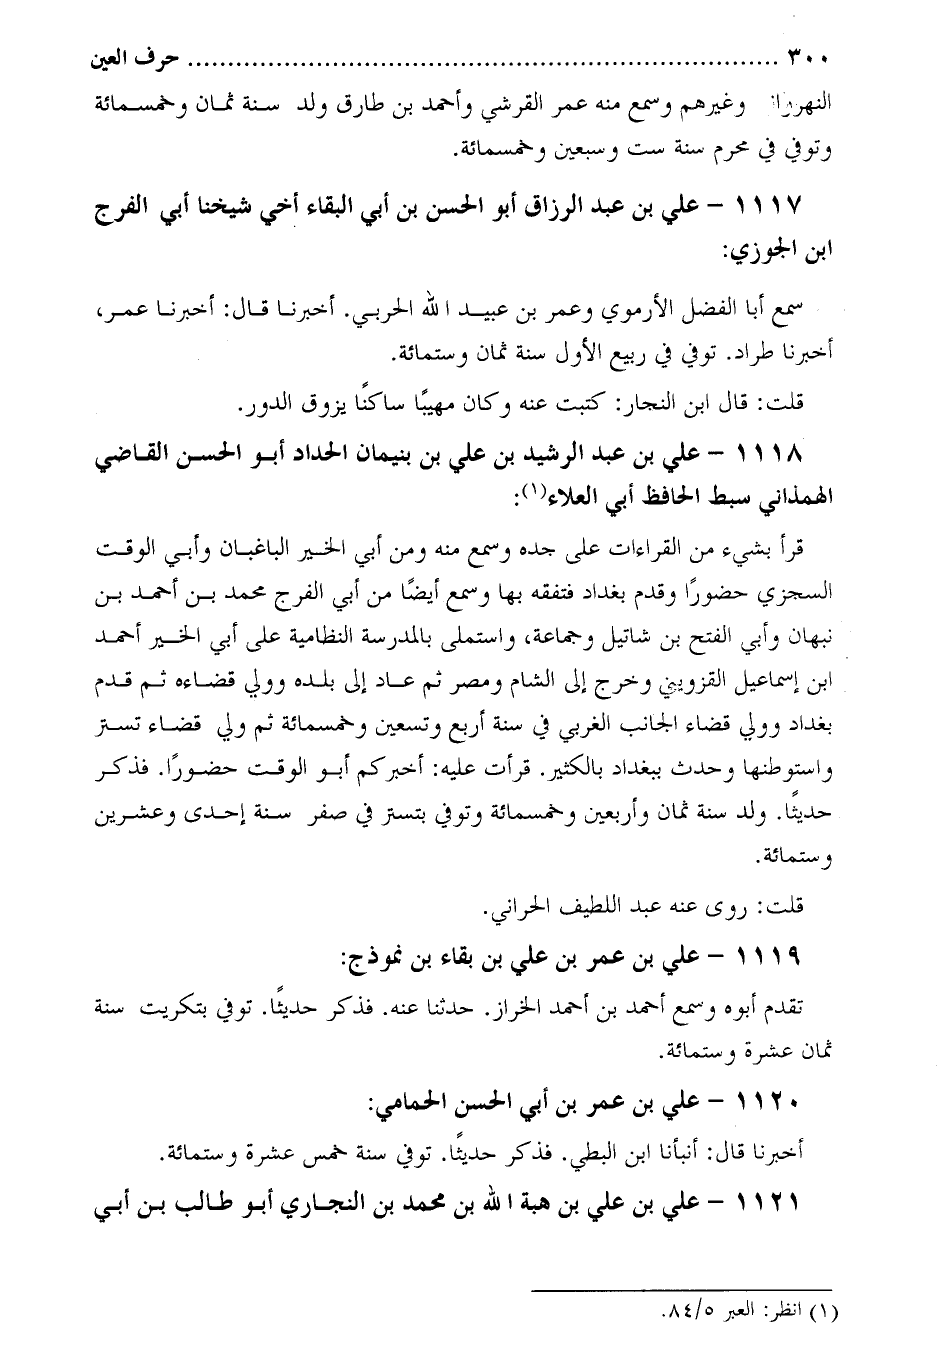 ٣٠٠ ........................................................................ حرف العين
وغيرهم وسمع منه عمر القرشي وأحمد بن طارق ولد سنة ثمان وخمسمائة
وتوفي في محرم سنة ست وسبعين وخمسمائة.
١١١٧ – علي بن عبد الرزاق أبو الحسن بن أبي البقاء أخي شيخنا أبي الفرج
ابن الجوزي:
سمع أبا الفضل الأرموي وعمر بن عبيد الله الحربي. أخبرنا قال: أخبرنا عمر،
أخبرنا طراد. توفي في ربيع الأول سنة ثمان وستمائة.
قلت: قال ابن النجار: كتبت عنه وكان مهيبًا ساكنًا يزوق الدور.
١١١٨ – علي بن عبد الرشيد بن علي بن بنيمان الحداد أبو الحسن القاضي
الهمذاني سبط الحافظ أبي العلاء(١):
قرأ بشيء من القراءات على جده وسمع منه ومن أبي الخير الباغبان وأبي الوقت
السجزي حضورًا وقدم بغداد فتفقه بها وسمع أيضًا من أبي الفرج محمد بن أحمد بن
نبهان وأبي الفتح بن شاتيل وجماعة، واستملى بالمدرسة النظامية على أبي الخير أحمد
ابن إسماعيل القزويني وخرج إلى الشام ومصر ثم عاد إلى بلده وولي قضاءه ثم قدم
بغداد وولي قضاء الجانب الغربي في سنة أربع وتسعين وخمسمائة ثم ولي قضاء تستر
واستوطنها وحدث ببغداد بالكثير. قرأت عليه: أخبركم أبو الوقت حضورًا. فذكر
حديثًا. ولد سنة ثمان وأربعين وخمسمائة وتوفي بتستر في صفر سنة إحدى وعشرين
وستمائة.
قلت: روى عنه عبد اللطيف الحراني.
١١١٩ – علي بن عمر بن علي بن بقاء بن نموذج:
تقدم أبوه وسمع أحمد بن أحمد الخراز. حدثنا عنه. فذكر حديثًا. توفي بتكريت سنة
ثمان عشرة وستمائة.
١١٢٠ – علي بن عمر بن أبي الحسن الحمامي:
أخبرنا قال: أنبأنا ابن البطي. فذكر حديثًا. توفي سنة خمس عشرة وستمائة.
١١٢١ – علي بن علي بن هبة الله بن محمد بن النجاري أبو طالب بن أبي
(١) انظر: العبر ٨٤/٥.